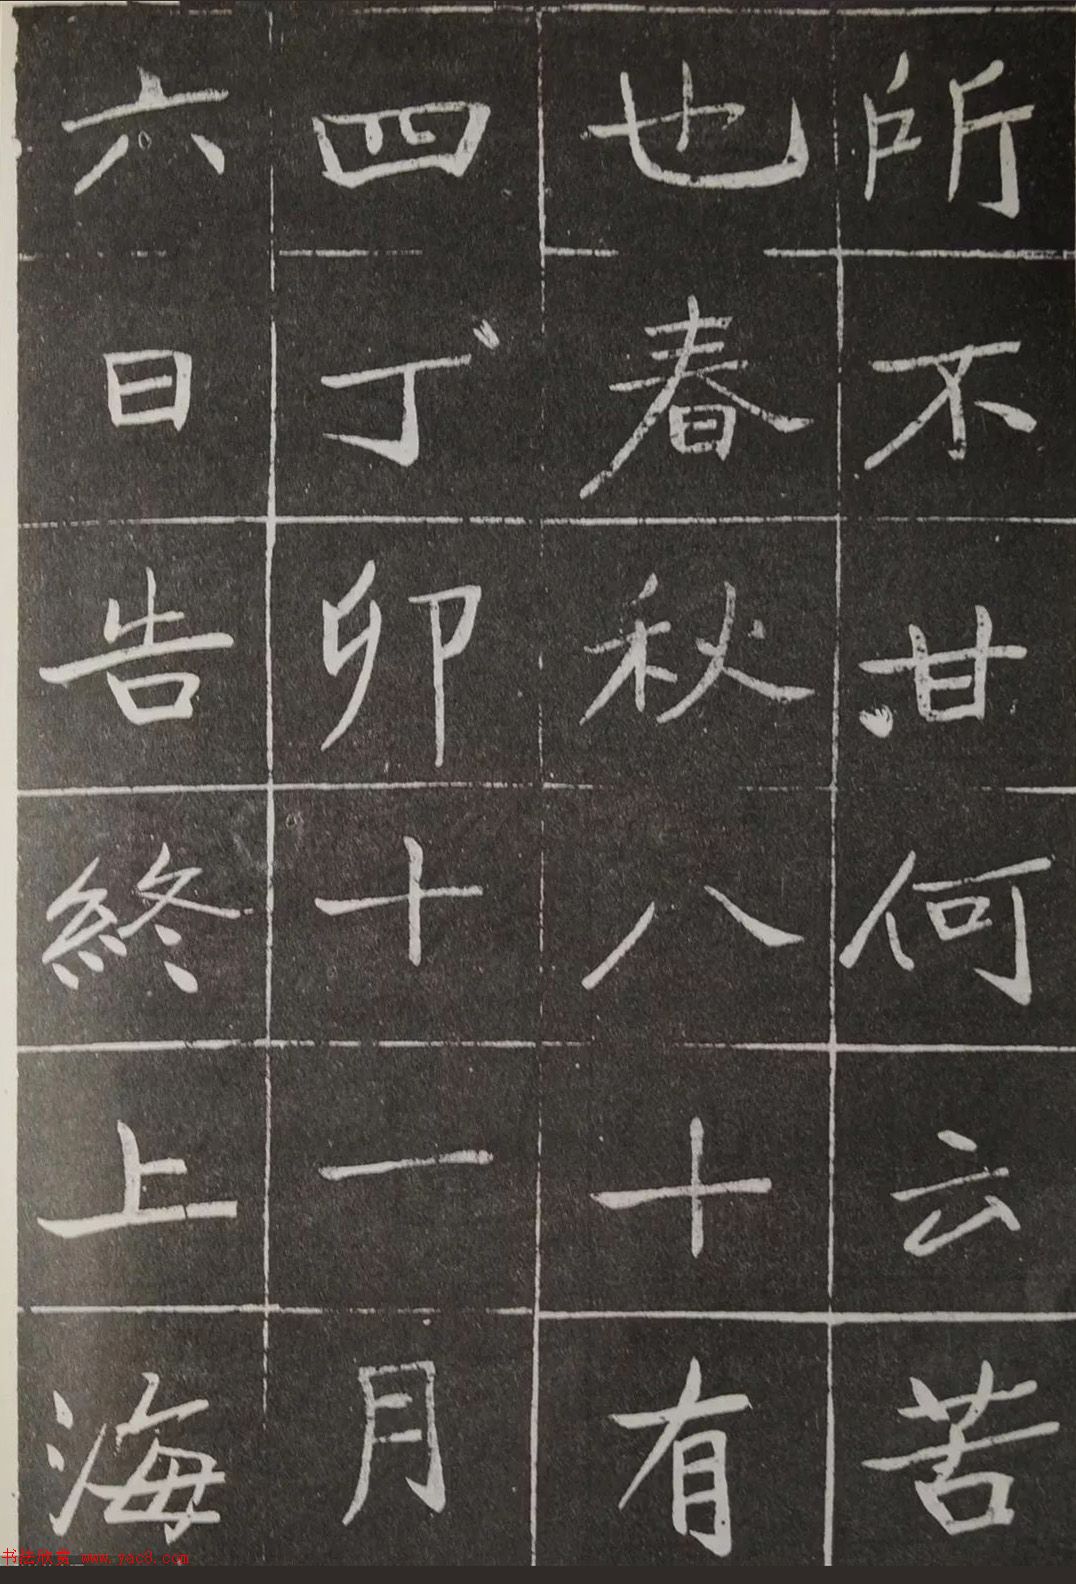 所不甘何云苦
也春秋八十有
四丁卯十一月
六日告終上海
书法欣赏 www.yac8.com